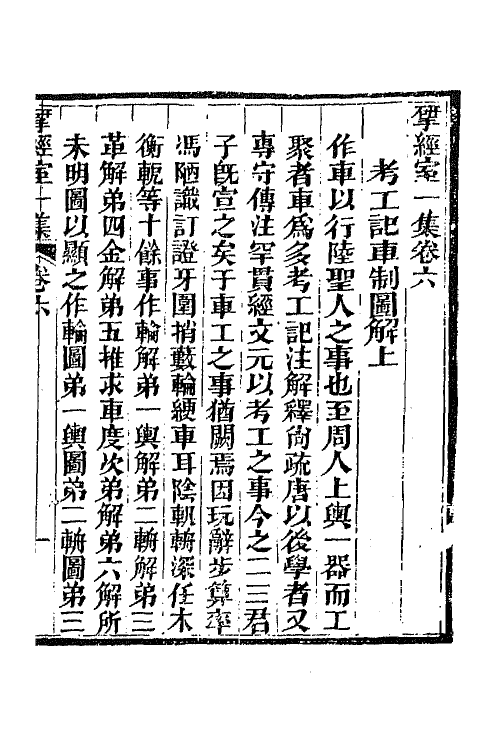 揅經室一集卷六
考工記車制圖解上
作車以行陸聖人之事也至周人上輿一器而工
聚者車爲多考工記注解釋尙疏唐以後學者又
專守傳注罕貫經文元以考工之事今之二三君
子旣宣之矣于車工之事猶闕焉因玩辭步算率
馮陋識訂證牙圍捎藪輪綆車耳陰軓輈深任木
衡軛等十餘事作輪解弟一輿解弟二輈解弟三
革解弟四金解弟五推求車度次弟解弟六解所
未明圖以顯之作輪圖弟一輿圖弟二輈圖弟三
揅經室一集 卷六 一